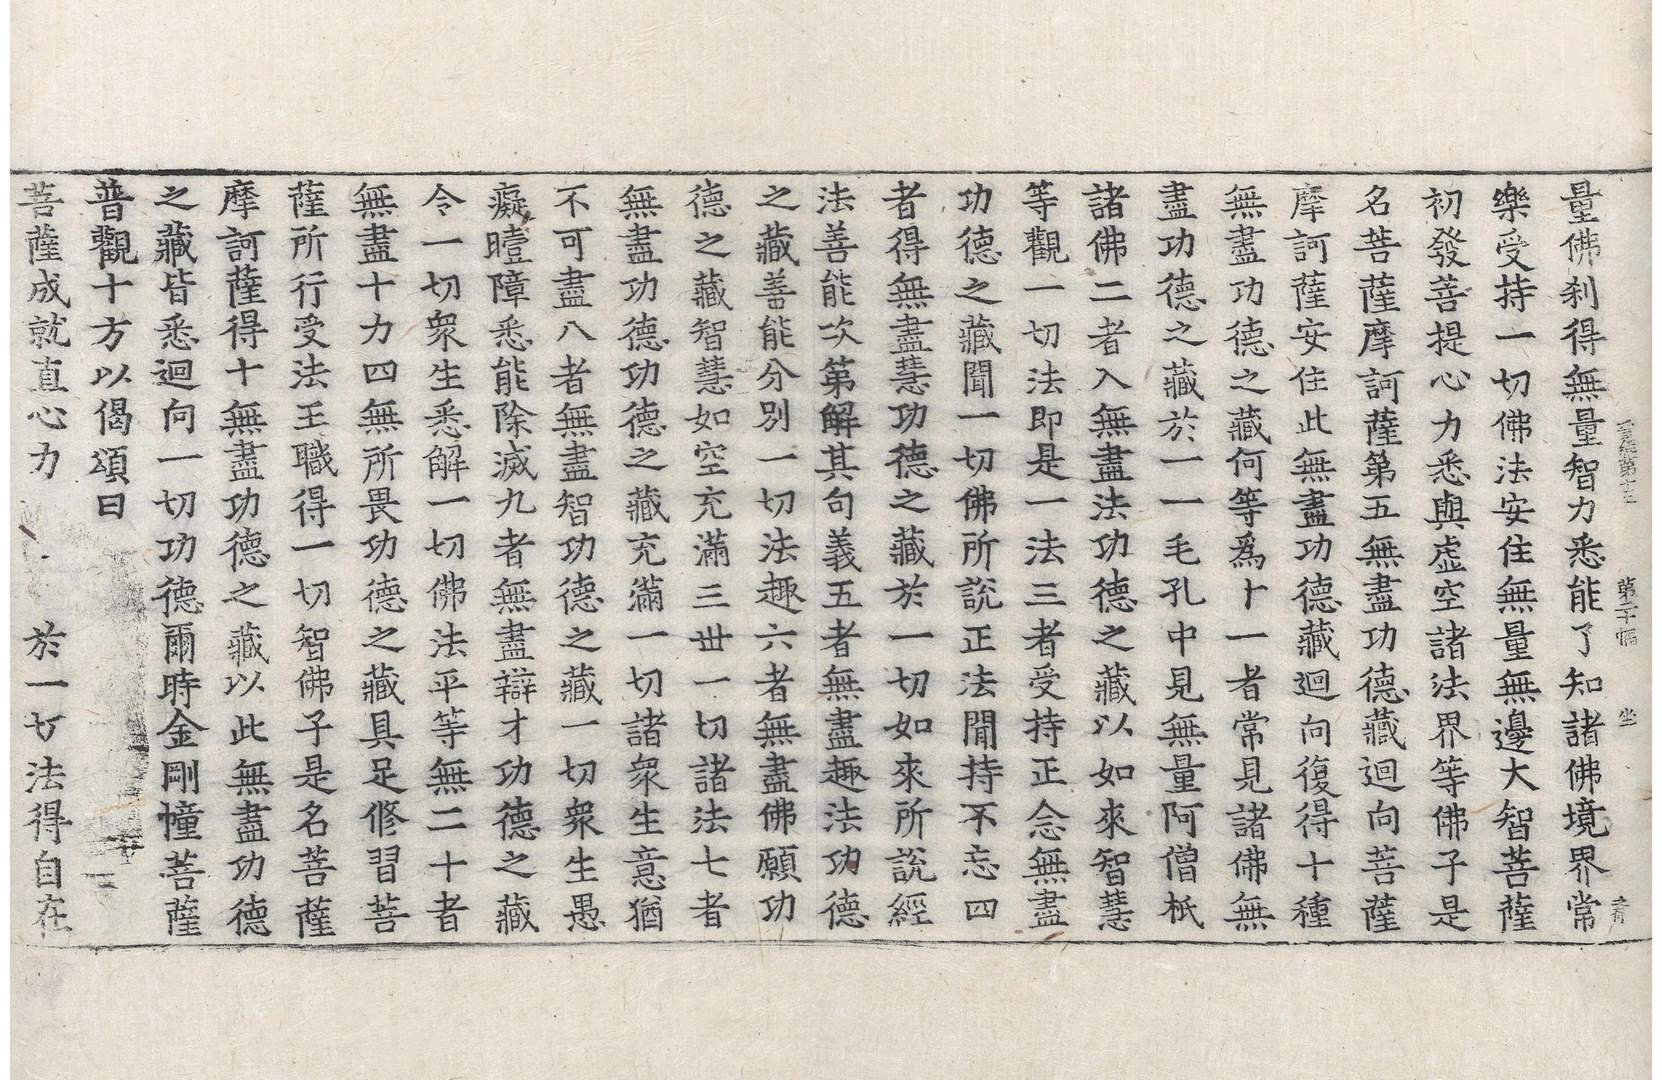 量佛刹得無量智力悉能了知諸佛境界常
樂受持一切佛法安住無量無邊大智菩薩
初發菩提心力悉與虛空諸法界等佛子是
名菩薩摩訶薩第五無盡功德藏迴向菩薩
摩訶薩安住此無盡功德藏迴向復得十種
無盡功德之藏何等爲十一者常見諸佛無
盡功德之藏於一一毛孔中見無量阿僧秖
諸佛二者入無盡法功德之藏以如來智慧
等觀一切法即是一法三者受持正念無盡
功德之藏聞一切佛所說正法聞持不忘四
者得無盡慧功德之藏於一切如來所說經
法善能次第解其句義五者無盡趣法功德
之藏善能分別一切法趣六者無盡佛願功
德之藏智慧如空充滿三世一切諸法七者
無盡功德功德之藏充滿一切諸衆生意猶
不可盡八者無盡智功德之藏一切衆生愚
癡曀障悉能除滅九者無盡辯才功德之藏
令一切衆生悉解一切佛法平等無二十者
無盡十力四無所畏功德之藏具足修習菩
薩所行受法王職得一切智佛子是名菩薩
摩訶薩得十無盡功德之藏以此無盡功德
之藏皆悉迴向一切功德爾時金剛幢菩薩
普觀十方以偈頌曰
菩薩成就直心力 於一切法得自在